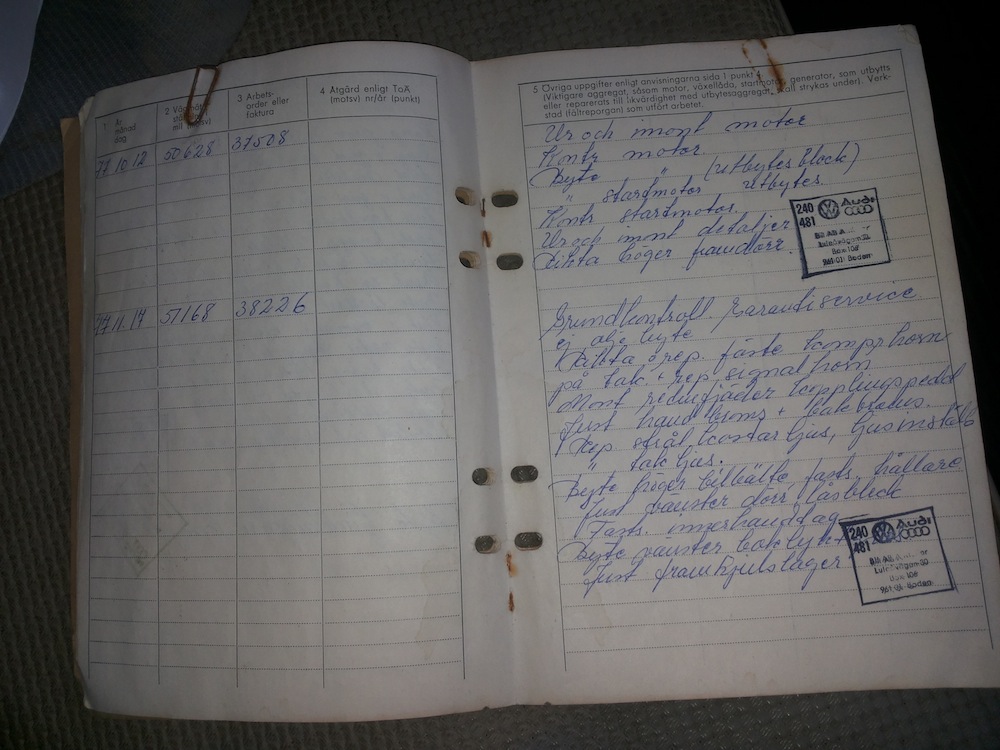 1 År månad dag
2 Vägmätar-
mil (motsv)
3 Arbets-
order eller
faktura
4 Åtgärd enligt ToA
(motsv) nr/år (punkt)
77 10 12 50628 37508
77 11 14 51168 38226
5 Övriga uppgifter enligt anvisningarna sida 1 punkt 4.
(Viktigare aggregat, såsom motor, växellåda, startmotor, generator, som utbytts
eller reparerats till likvärdighet med utbytesaggregat, skall strykas under). Verk-
stad (fältreporgan) som utfört arbetet.
Ur och imont motor
Kontr motor
Byte " (utbytes block)
" startmotor utbytes.
Kontr startmotor.
Ur och imont detaljer
Rikta höger framdörr.
240
481
Audi
Luleåvägen
Box 106
961 01 Boden
Grundkontroll Garantiservice
ej olje byte
Rikta o rep. fäste kompr horn
på tak. + rep signal horn
Mont returfjäder kopplingspedal
Just hand broms + bak broms.
Rep strålkastar ljus, ljusinställ
" tak ljus.
Byte höger bilbälte, fasts. hållare
Just vänster dörr låsbleck
Fasts. innerhandtag
Byte vänster bak lykt
Just framhjulslager
240
481
Audi
Luleåvägen
Box 106
961 01 Boden